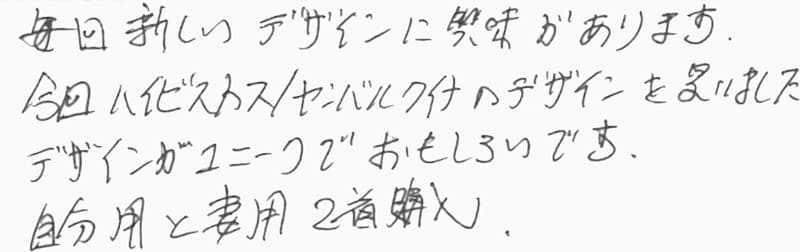 毎回新しいデザインに興味があります.
今回ハイビスカス/ヤンバルクイナのデザインを見ました
デザインがユニークでおもしろいです.
自分用と妻用2着購入.